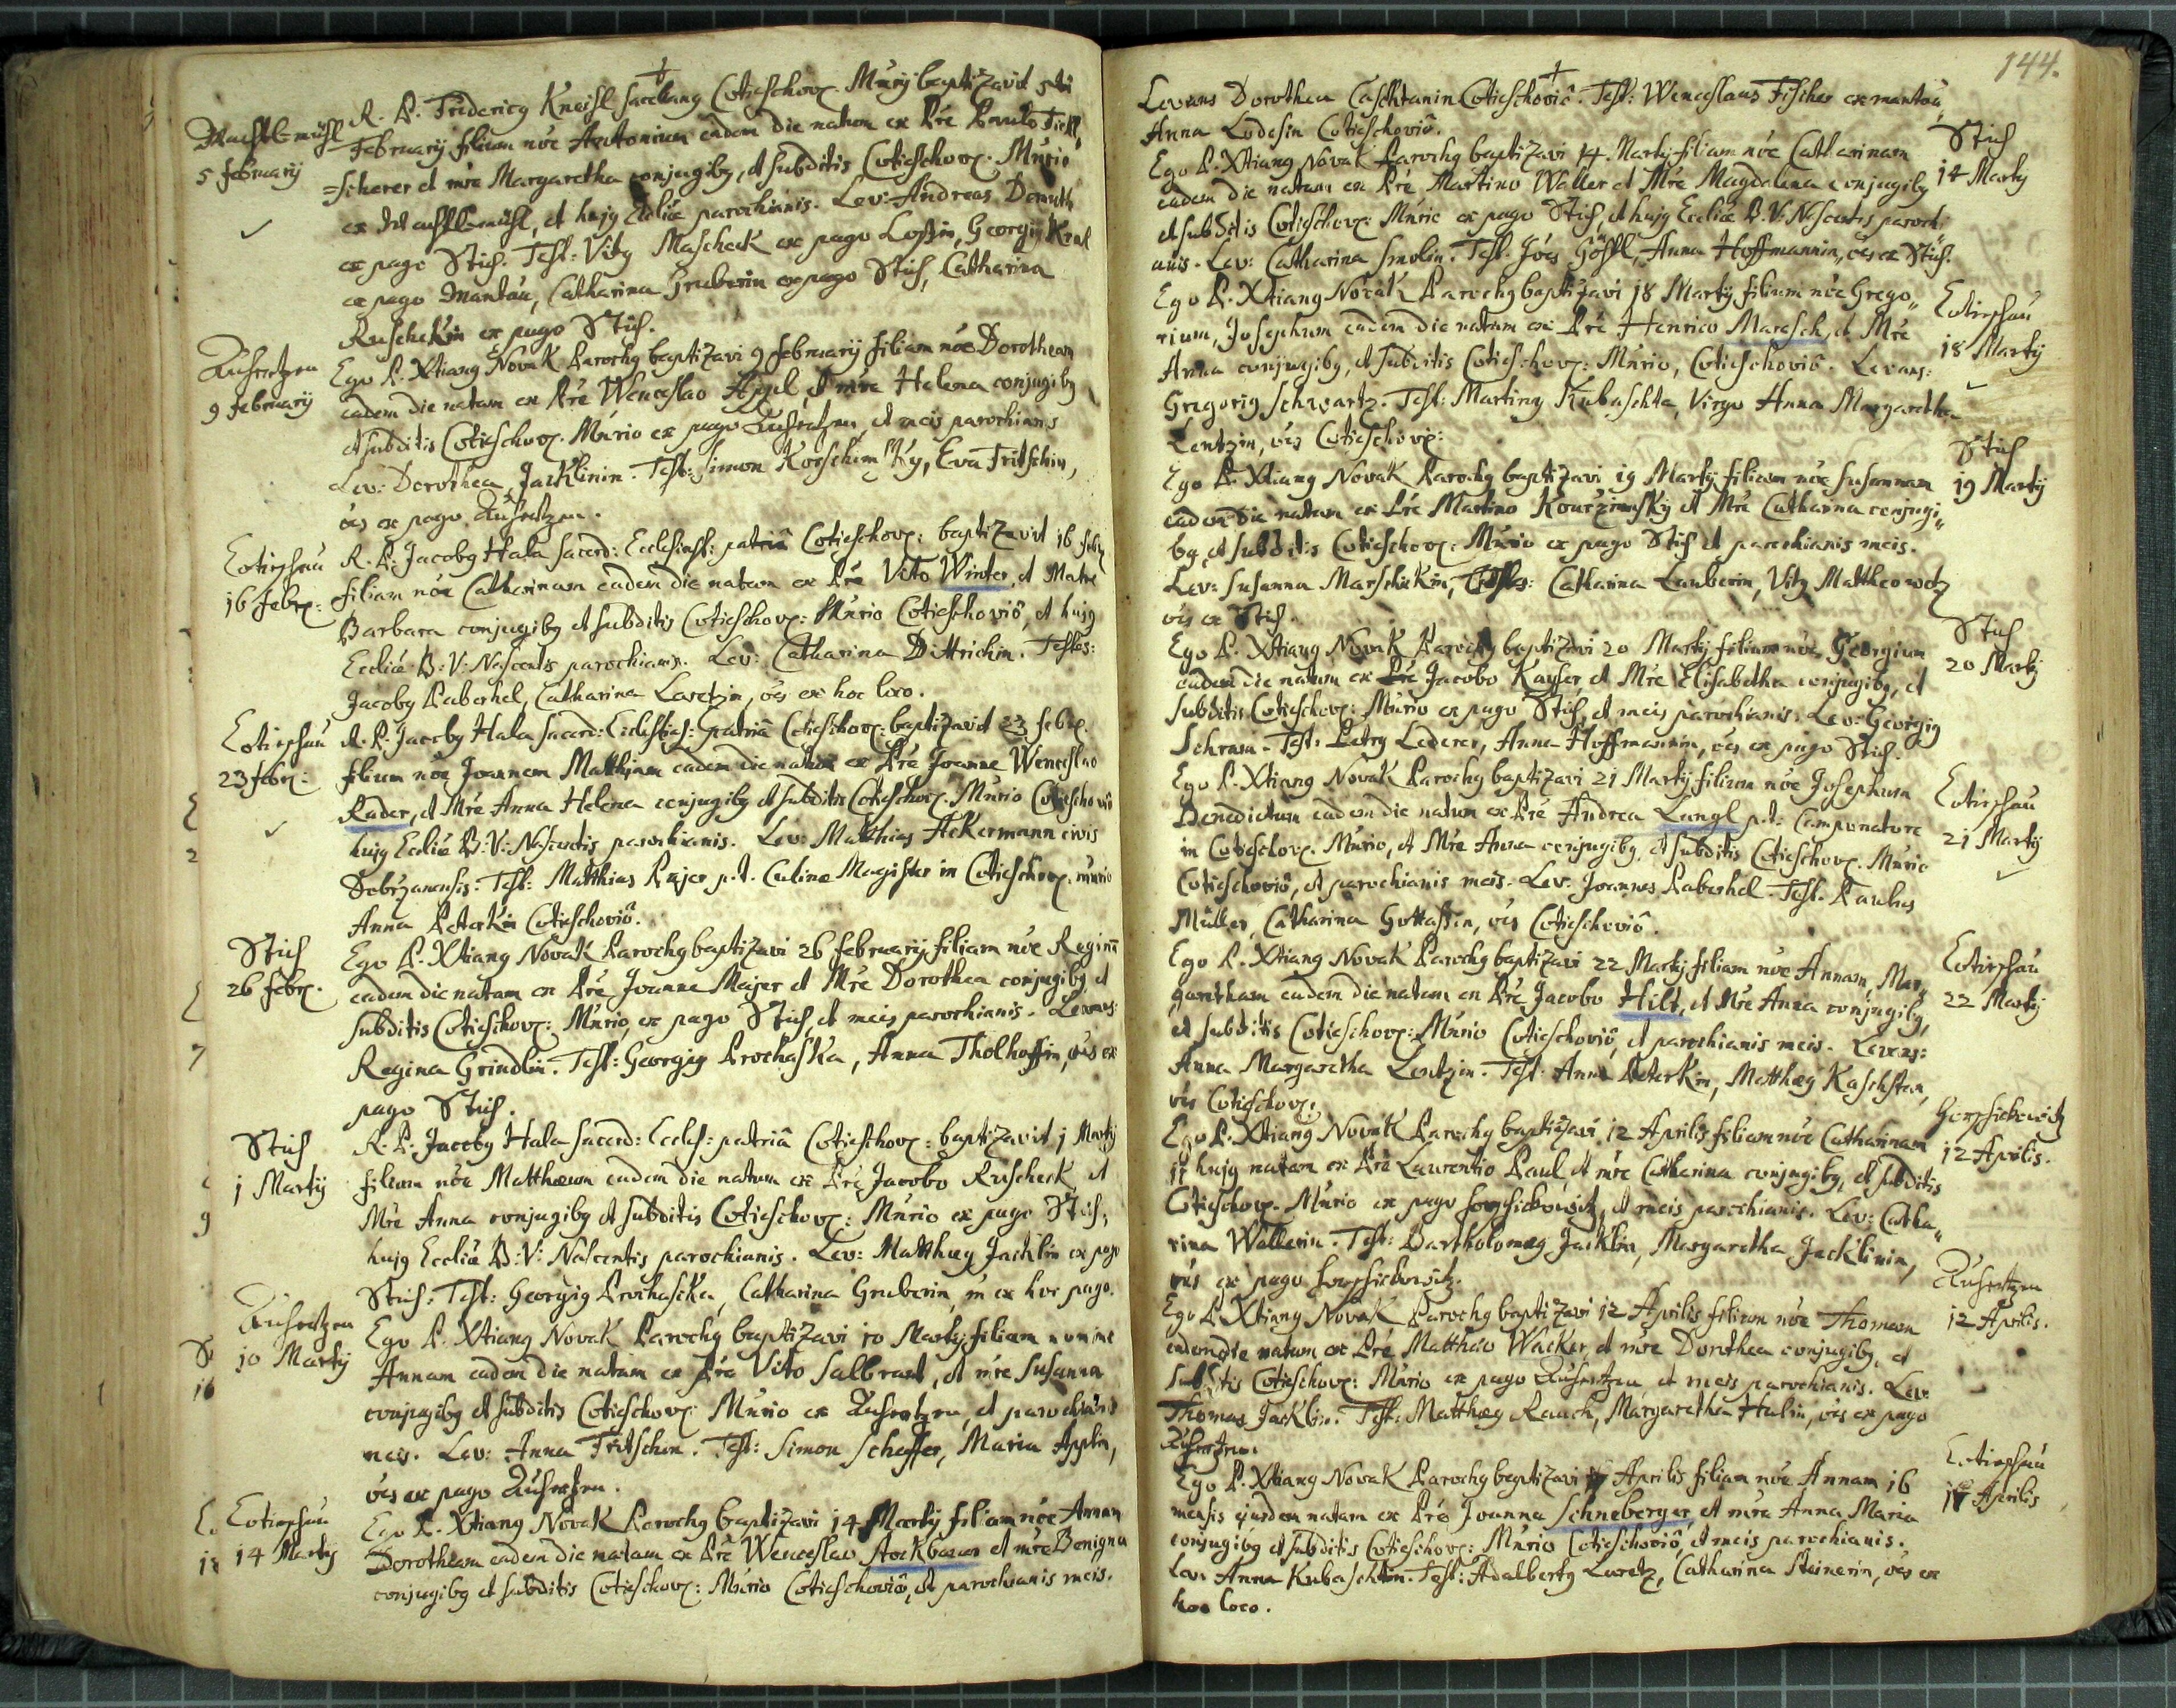 R. P. Fridericg Kneisl Sacellang Cotieschov. Mŭry baptizavit 5tâ
5 februarij
February filium nōe Antonium eâdem die natum ex Pre Paulo Fickl
=scherer et mre Margaretha conjugibg, et subditis Cotieschov. Mŭrio
et hujg Ecclīæ parochianis. Lev: Andreas Demuth
ex pago Stich. Test: Vitg Mascheck ex pago Lossin, Georgig Kral
ex pago Mantau, Catharina Gruberin ex pago Stich, Catharina
Ruscheckin ex pago Stich.
Auhertzen
9 februarij
Ego P. Xtiang Novak Parochg baptizavi 9 februarij filiam nōe Dorotheam
eadem die natam ex Pre Wenceslao Appl et mre Helena conjugibg
et subditis Cotieschov. Mŭrio ex pago Auhertzen, et meis parochianis
Lev: Dorothea Jacklinin. Test: Simon Korschinsky, Eva Fritschin,
oēs ex pago Auhertzen.
Cotieschau
16 febr:
R. P. Jacobg Hala Sacerd: Ecclesiast: patriâ Cotieschov: baptizavit 16 febr
filiam nōe Catharinam eadem die natam ex Pre Vito Winter, et Matre
Barbara conjugibg et subditis Cotieschov: Mŭrio Cotieschoviô, et hujg
Ecclīæ B: V: Nascentis parochianis. Lev: Catharina Dittrichin. Testes:
Jacobg Paberhel, Catharina Laretzin, oēs ex hoc loco.
Cotieschau
23 febr:
R. P. Jacobg Hala Sacerd: Ecclesias: patriâ Cotieschov: baptizavit 23 febr.
filium nōe Joannem Mathiam eadem die natum ex Pre Joanne Wenceslao
Rader, et Mre Anna Helena conjugibg et subditis Cotieschov. Mŭrio Cotieschoviô
hujg Ecclīæ B: V: Nascentis parochianis. Lev: Matthias Ackermann civis
Dobrzanensis: Test: Matthias Rajer p.t. Culinæ Magister in Cotieschov: mŭrio
Anna Peterkin Cotieschoviô.
Stich
26 febr.
Ego P. Xtiang Novak Parochg baptizavi 26 februarij filiam nōe Reginā
eadem die natam ex Pre Joanne Majer et Mre Dorothea conjugibg et
subditis Cotieschov: Mŭrio, ex pago Stich, et meis parochianis. Levans:
Regina Grindlin. Test: Georgig Prochaska, Anna Tholhoffin, oēs ex
pago Stich.
Stich
1 Martij
R. P. Jacobg Hala Sacerd: Eccles: patriâ Cotieschov: baptizavit 1 Martij
filium nōe Matthæum eadem die natum ex Pre Jacobo Ruscheck, et
Mre Anna conjugibg et subditis Cotieschov: Mŭrio ex pago Stich,
hujg Ecclīæ B: V: Nascentis parochianis. Lev: Matthæg Jacklin ex pago
Stich: Test: Georgig Prochaska, Catharina Gruberin, ex hoc pago.
Auhertzen
10 Martij
Ego P. Xtiang Novak Parochg baptizavi 10 Martij filiam nomine
Annam eadem die natam ex Pre Vito Salbrant, et mre Susanna
conjugibg et subditis Cotieschov: Mŭrio ex Auhertzen, et parochianis
meis. Lev: Anna Fritschin. Test: Simon Scheffer, Maria Applin,
oēs ex pago Auhertzen.
Cotieschau
14 Martij
Ego P. Xtiang Novak Parochg baptizavi 14 Martij filiam nōe Annam
Dorotheam eadem die natam ex Pre Wenceslao Stockbauer et mre Benigna
conjugibg et subditis Cotieschov: Mŭrio Cotieschoviô, et parochianis meis.
144.
Levans Dorothea Caschtanin Cotieschoviô. Test: Wenceslaus Fischer ex mantau
Anna Lodesin Cotieschoviô.
Stich
14 Martij
Ego P. Xtiang Novak Parochg baptizavi 14. Martij filiam nōe Catharinam
eadem die natam ex Pre Martino Waller et Mre Magdalena conjugibg
et subditis Cotieschov: Mŭrio ex pago Stich, et hujg Ecclīæ B: V: Nascentis parochi
anis. Lev: Catharina Smolin. Test: Joēs Gössl, Anna Hoffmannin, oēs ex Stich.
Cotieschau
18 Martij
Ego P. Xtiang Novak Parochg baptizavi 18 Martij filium nōe Grego„
rium, Josephum eadem die natum ex Pre Henrico Maresch, et Mre
Anna conjugibg, et subditis Cotieschov: Mŭrio, Cotieschoviô. Levans:
Gregorig Schwartz. Test: Marting Kubaschta, Virgo Anna Margaretha
Lentzin, oēs Cotieschov:
Stich
19 Martij
Ego P. Xtiang Novak Parochg baptizavi 19 Martij filiam nōe Susannam
eadem die natam ex Pre Martino Kourzimsky et Mre Catharina conjugi„
bg, et subditis Cotieschov: Mŭrio ex pago Stich et parochianis meis.
Lev: Susanna Marschikin, Testes: Catharina Lauberin, Vitg Mattheowetz
oēs ex Stich.
Stich
20 Martij
Ego P. Xtiang Novak Parochg baptizavi 20 Martij filium nōe Georgium
eadem die natum ex Pre Jacobo Kayser, et Mre Elisabetha conjugibg, et
subditis Cotieschov: Mŭrio ex pago Stich, et meis parochianis. Lev: Georgig
Schram. Test: Petrg Lederer, Anna Hoffmannin, oēs ex pago Stich.
Cotieschau
21 Martij
Ego P. Xtiang Novak Parochg baptizavi 21 Martij filium nōe Josephum
Benedictum eadem die natum ex Pre Andrea Langl p.t: Campanatore
in Cotieschov. Mŭrio, et Mre Anna conjugibg, et subditis Cotieschov. Mŭrio
Cotieschoviô, et parochianis meis. Lev: Joannes Paberhel. Test. Paulus
Müller, Catharina Gottassin, oēs Cotieschoviô.
Cotieschau
22 Martij
Ego P. Xtiang Novak Parochg baptizavi 22 Martij filiam nōe Annam, Mar„
garetham eadem die natam ex Pre Jacobo Hilt, et Mre Anna conjugibg,
et subditis Cotieschov: Mŭrio Cotieschoviô, et parochianis meis. Levans:
Anna Margaretha Lentzin. Test: Anna Peterkin, Matthæg Kaschtan,
oēs Cotieschov:
12 Aprilis.
Ego P. Xtiang Novak Parochg baptizavi 12 Aprilis filiam nōe Catharinam
11 hujg natam ex Pre Laurentio Paul, et mre Catharina conjugibg, et subditis
Cotieschov. Mŭrio ex pago et meis parochianis. Lev: Catha„
rina Wallerin. Test: Bartholomæg Jacklin, Margaretha Jacklinin,
oēs ex pago
Auhertzen
12 Aprilis.
Ego P. Xtiang Novak Parochg baptizavi 12 Aprilis filium nōe Thomam
eadem die natum ex Pre Matthæo Wacker, et mre Dorothea conjugibg, et
subditis Cotieschov: Mŭrio ex pago Auhertzen et meis parochianis. Lev:
Thomas Jacklin. Test: Matthæg Rauch, Margaretha Hulin, oēs ex pago
Auhertzen.
Cotieschau
17 Aprilis
Ego P. Xtiang Novak Parochg baptizavi 17 Aprilis filiam nōe Annam 16
mensis ejusdem natam ex Pre Joanne Schneberger, et mre Anna Maria
conjugibg et subditis Cotieschov: Mŭrio Cotieschoviô, et meis parochianis.
Lev: Anna Kubaschtin. Test: Adalbertg Laretz, Catharina Steinerin, oēs ex
hoc loco.